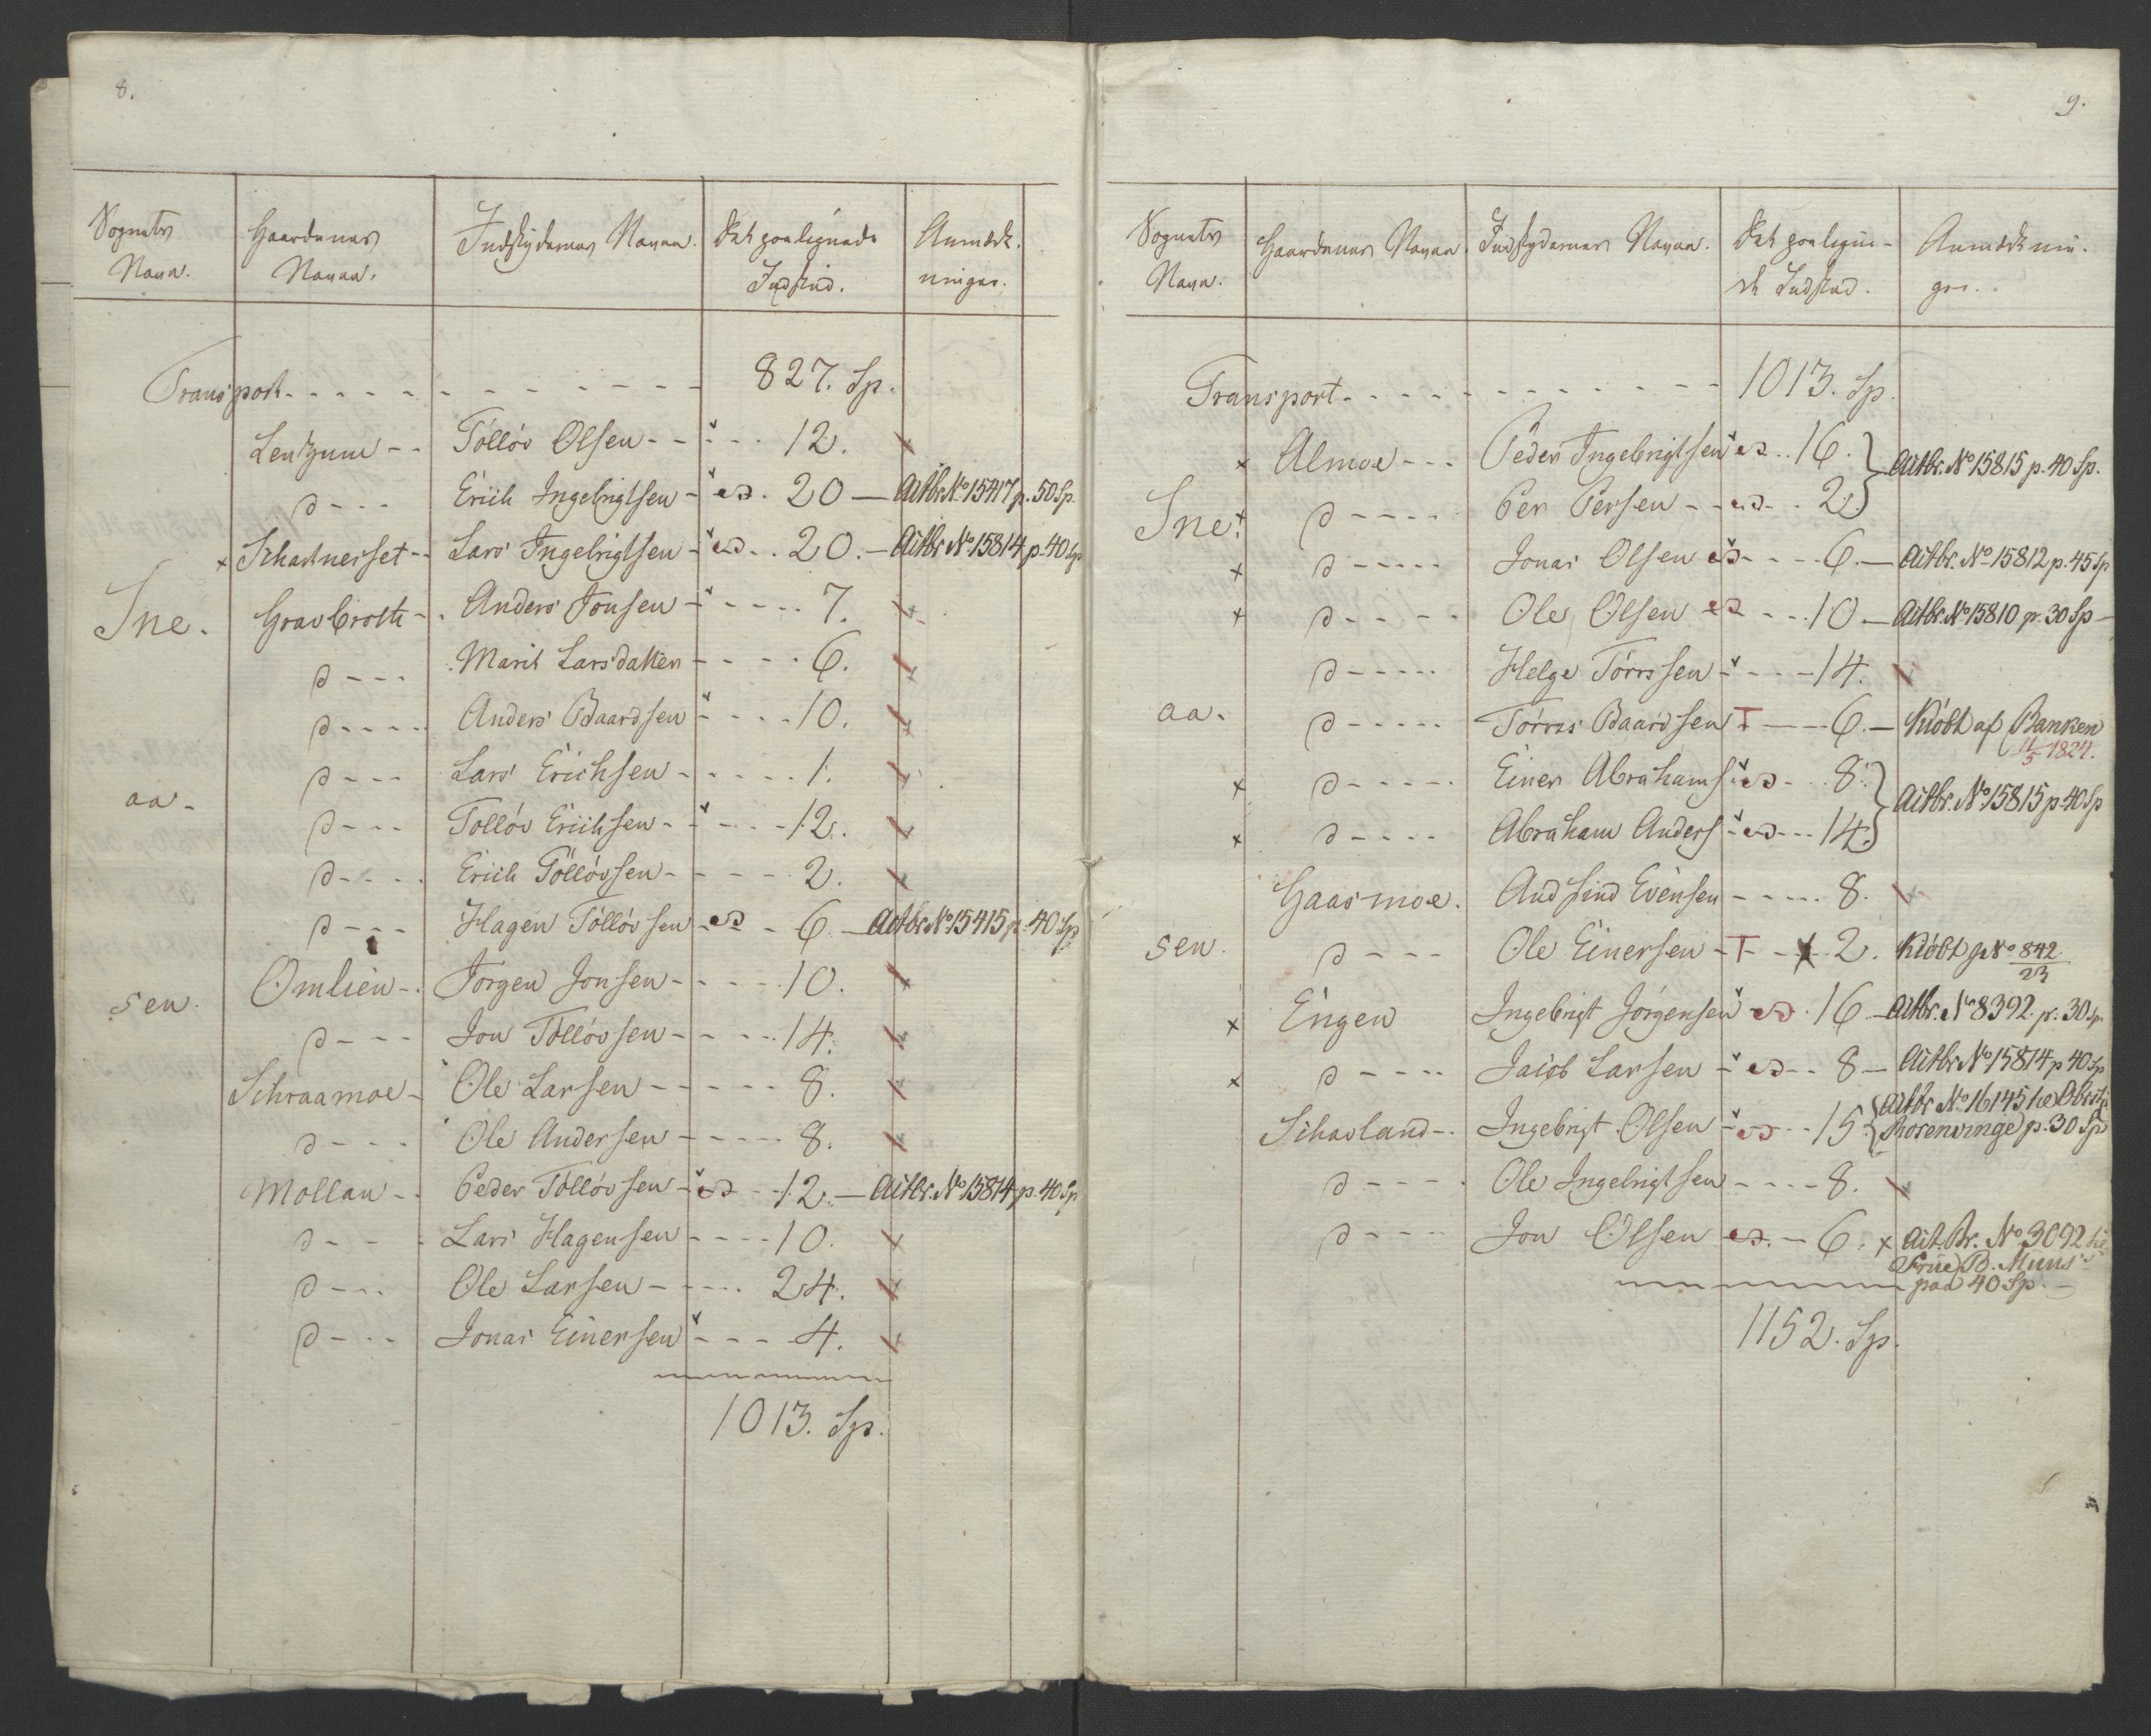 8.
Sognets Navn. Gaardenes Navne. Indskydernes Navne. Det paalignede Indskud. Anmærkninger.
Transport - - - - 827. Sp.
Lentzune - - Tolløv Olsen - - - 12.
d - - - Erich Ingebrigtsen - 20 — Actbr. No 15417 p. 50 Sp.
x Schachnerset - - Lars Ingebrigtsen - 20. — Actbr. No 15814 p. 40 Sp
Gravbroth - Anders Jonsen - - - 7.
Sne.
d - - - Marit Larsdatter - - - 6.
d - - - Anders Baardsen - - - 10.
d - - - Lars Erichsen - - - 1.
aa -
d - - - Tolløv Erichsen - - - 12.
d - - - Erich Tølløvsen - - - 2.
d - - - Hagen Tølløvsen - - 6. — Actbr. No 15415 p. 40 Sp
sen.
Omlien - - Jørgen Jonsen - - - 10.
d - - - Jon Tølløvsen - - - 14.
Schraamoe - Ole Larsen - - - 8.
d - - - Ole Andersen - - - 8.
Mollan - - Peder Tølløvsen - - 12. — Actbr. No 15814 p. 40 Sp
d - - - Lars Hagensen - - - 10.
d - - - Ole Larsen - - - 24.
d - - - Jonas Einersen - - - 4.
1013. Sp.
9.
Sognets Navn. Gaardenes Navne. Indskydernes Navne. Det paalignede Indskud. Anmærkninger.
Transport - - - - 1013. Sp.
x Almoe - - - Peder Ingebrigtsen 16. } Actbr. No 15815 p. 40 Sp.
Sne.
x d - - - Per Persen - - 2. }
x d - - - Jonas Olsen - - - 6. — Actbr. No 15812 p. 45 Sp
x d - - - Ole Olsen - - - 10 — Actbr. No 15810 p. 30 Sp —
d - - - Helge Torrssen - - - 14.
aa.
d - - - Torrss Baardsen T - - 6. — Kiøbt af Banken
11/5 1824.
x d - - - Einer Abrahams - - 8. } Actbr. No 15815 p. 40 Sp
x d - - - Abraham Anders - - 14. }
Gaasmoe. Andsind Evensen - - - 8.
sen.
d - - - Ole Einersen - T - - 2. Kiøbt No 842/23
x Engen Ingebrigt Jørgensen 16 — Actbr. No 8392. p. 30 Sp.
x d - - - Jacob Larsen - - 8 — Actbr. No 15814 p 40 Sp
Schavland - - Ingebrigt Olsen - - 15. { Actbr No 16145
Rosenvinge p. 30 Sp
d - - - Ole Ingebrigtsen - - - 8.
d - - - Jon Olsen - - 6. x Act. Br. No 3092
Frue B. Muus
paa 40 Sp. —
1152. Sp.